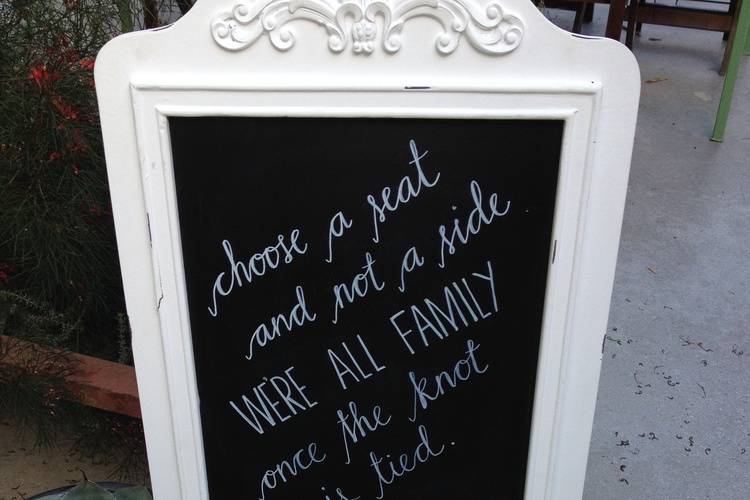 choose a seat
and not a side
WE'RE ALL FAMILY
once the knot
is tied.